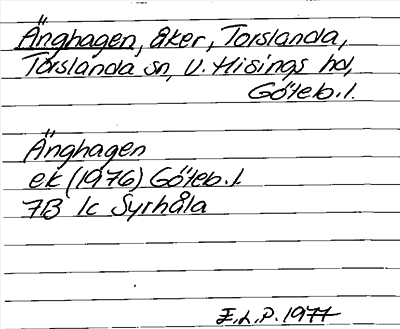 Änghagen, åker, Torslanda,
Torslanda sn, V. Hisings hd,
Göteb. l.
Änghagen
ek (1976) Göteb. l.
7B 1c Syrhåla
E.L.P. 1977